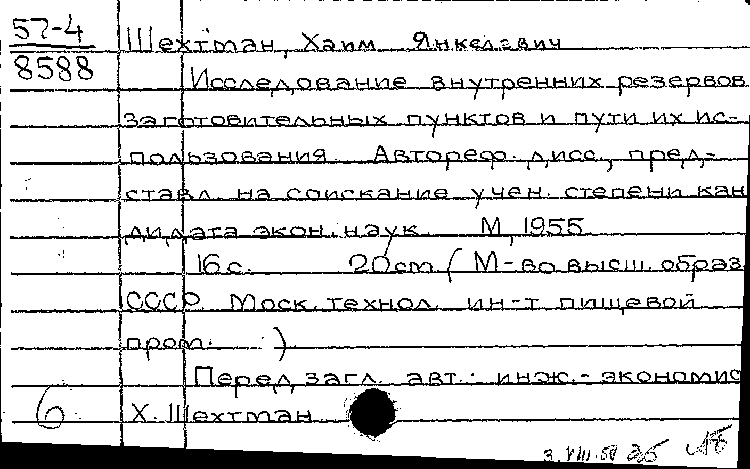 57-4
8588
Шехтман, Хаим Янкелевич
Исследование внутренних резервов
заготовительных пунктов и пути их ис-
пользования. Автореф. дисс., пред-
ставл. на соискание учен. степени кан
дидата экон. наук. М, 1955
16 с. 20cm (М-во высш. образ
СССР. Моск. технол. ин-т пищевой
пром. )
Перед загл. авт.: инж.-экономис
6 Х. Шехтман
3.VIII.58